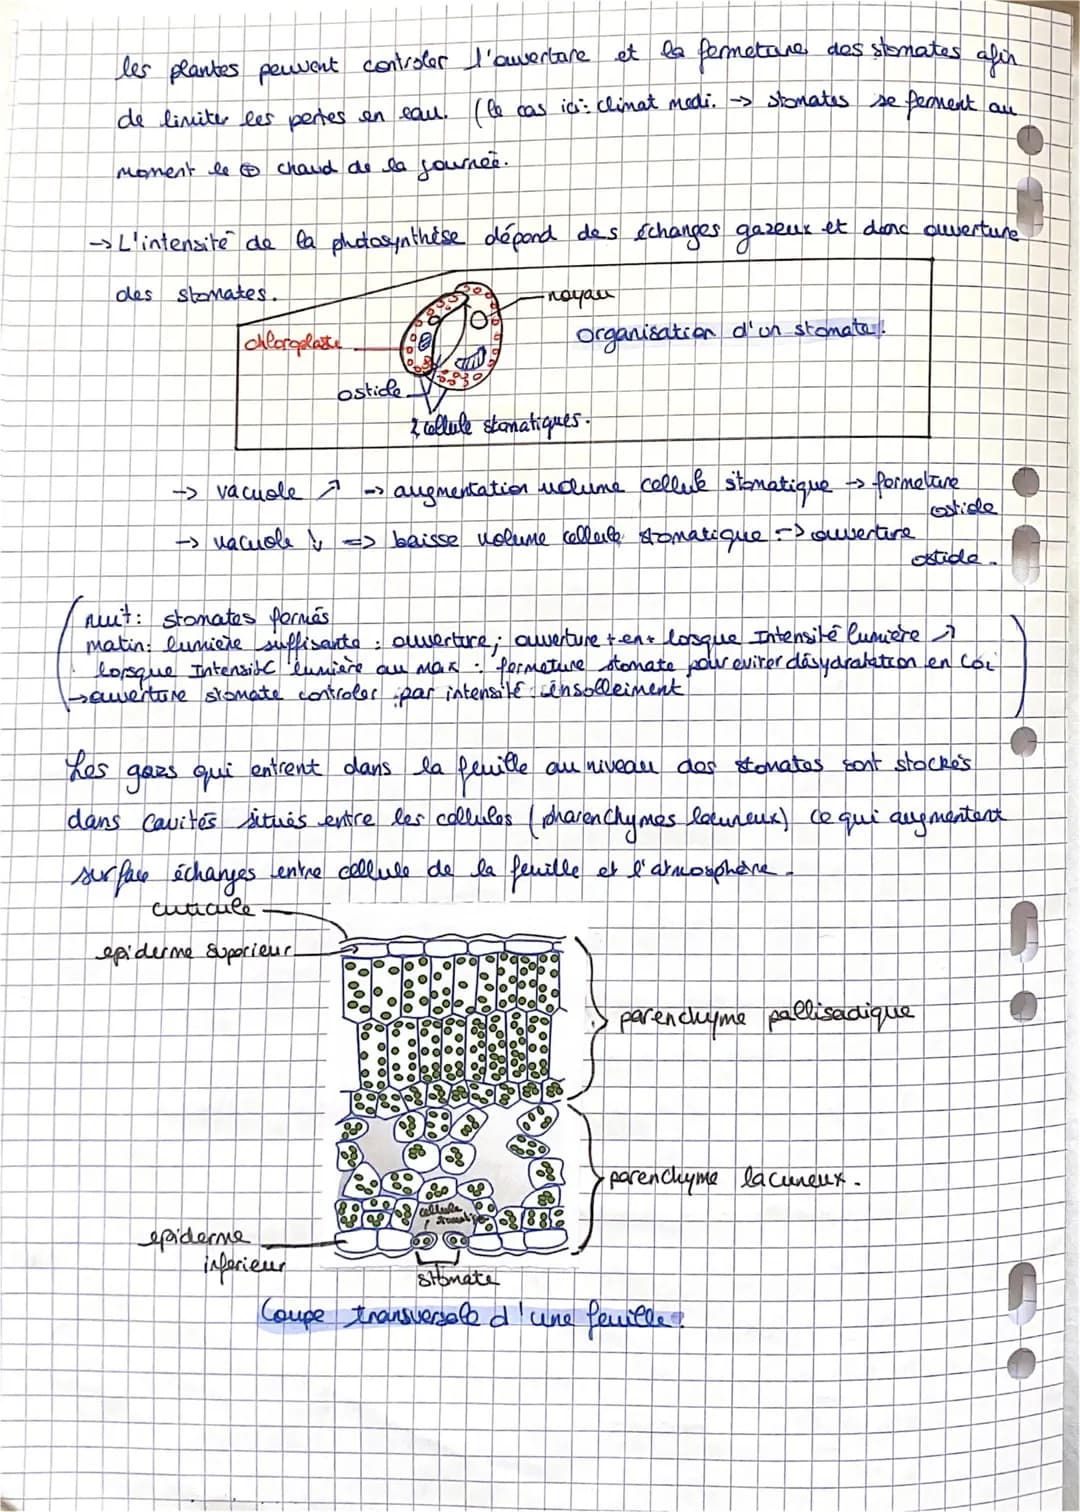 les plantes peuvent controler l'ouverture et la fermeture des stomates afin
de limiter les pertes en eau. (le cas ici: climat medi. -> stomates se ferment au
moment le ⊕ chaud de la journée.
-> L'intensité de la photosynthèse dépend des échanges gazeux et donc ouverture
des stomates.
noyau
organisation d'un stomate!
chloroplaste
ostiole
2 cellule stomatiques.
-> vacuole ↗ -> augmentation volume cellule stomatique -> fermeture
ostiole
-> vacuole ↓ => baisse volume cellule stomatique -> ouverture
ostiole.
nuit: stomates fermés
matin: lumière suffisante : ouverture; ouverture + en + lorsque Intensité lumière ↗
lorsque Intensité lumière au max : fermeture stomate pour eviter désydratation en
-> ouverture stomate controler par intensité ensolleiment
Les gazs qui entrent dans la feuille au niveau des stomates sont stockés
dans cavités situés entre les cellules (pharenchymes lacuneux) ce qui augmentent
surface échanges entre cellule de la feuille et l'atmosphère.
cuticule
epiderme superieur
parenchyme pallisadique
parenchyme lacuneux.
cellule
epiderme
inferieur
stomate
Coupe transversale d'une feuille: